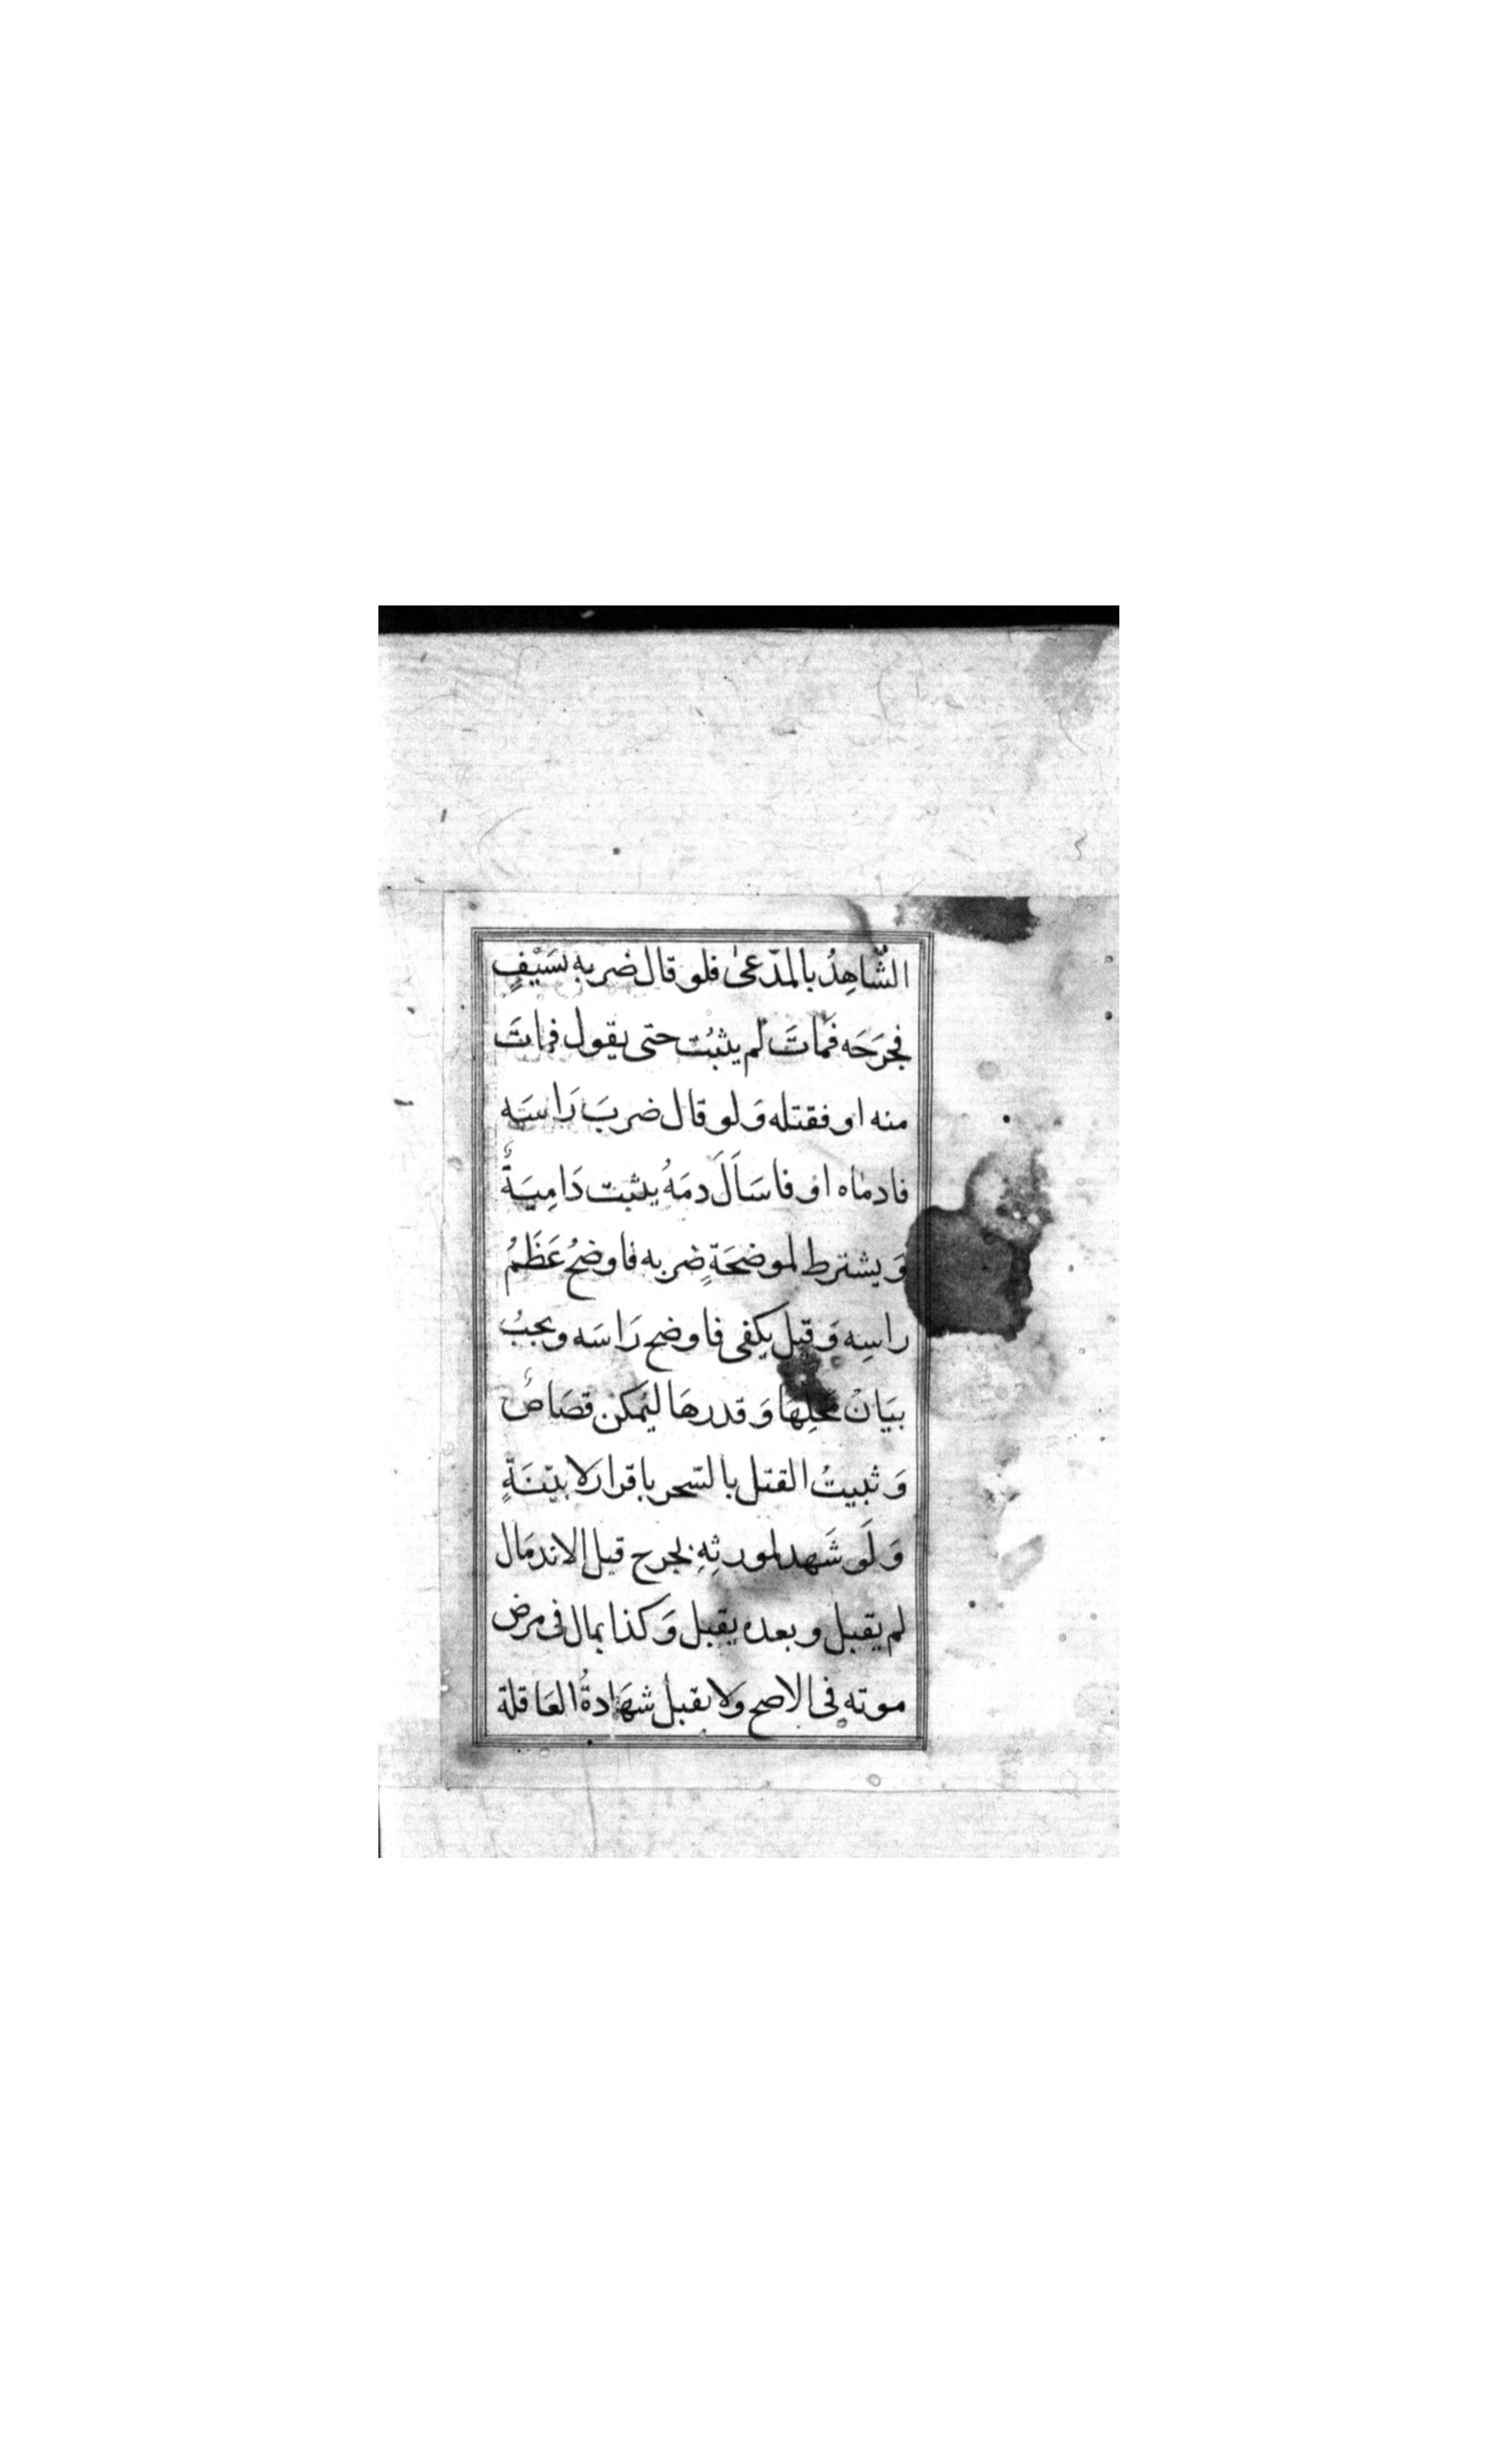 الشَّاهِدُ بالمدّعىٰ فلو قال ضربه بسَيْفٍ
فجرَحَه فَمَاتَ لم يثبُت حتى يقول فماتَ
منه او فقتله وَلو قال ضربَ رَاسَه
فادماه اوْ فاسَاَلَ دمَهُ يثبت دَامِيَةٌ
وَيشترط لموضحَةٍ ضربه فاوضحُ عَظَمُ
راسِه وَقيل يكفى فاوضح رَاسَه ويجبُ
بيَانُ محلِهَا وَقدرهَا ليُمكن قصَاصٌ
وَثبيتُ القتل بالسّحر باقرار لا ببيّنَةٍ
وَلَو شَهد لمورثِهِ بجرح قبل الاندمَال
لم يقبل وبعده يقبل وَكذا بمال فى مرض
موته فى الاصح ولا يقبل شهَادةُ العَاقلة